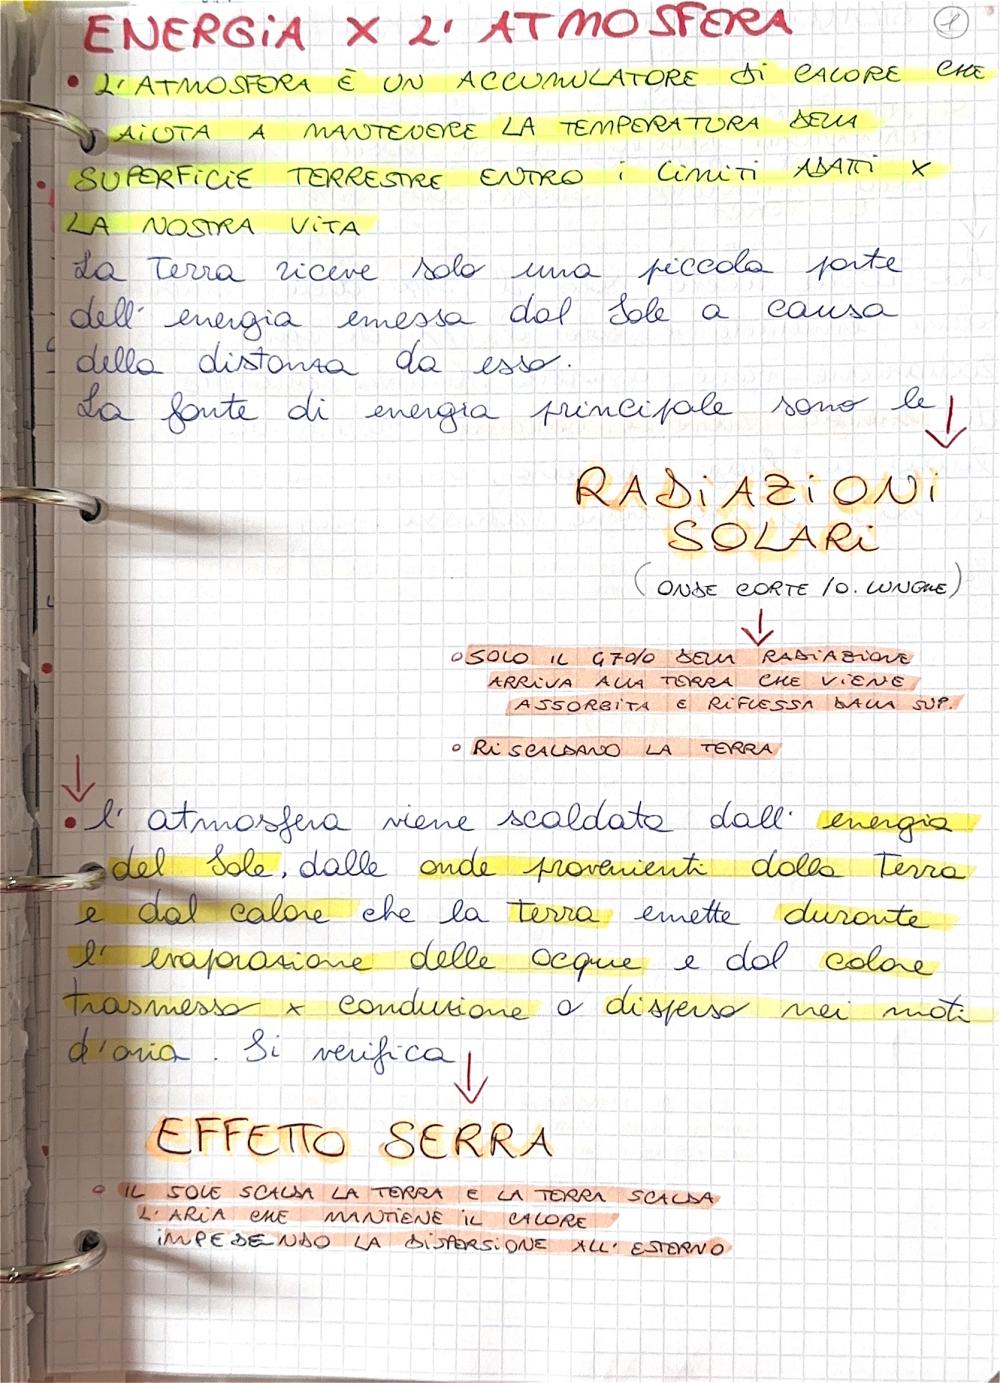 ENERGIA X L'ATMOSFERA
1
• L'ATMOSFERA È UN ACCUMULATORE DI CALORE CHE
AIUTA A MANTENERE LA TEMPERATURA DELLA
SUPERFICIE TERRESTRE ENTRO i LIMITI ADATTI X
LA NOSTRA VITA
La Terra riceve solo una piccola parte
dell'energia emessa dal Sole a causa
della distanza da esso.
La fonte di energia principale sono le ↓
RADIAZIONI
SOLARI
(ONDE CORTE / O. LUNGHE)
↓
◦ SOLO IL 47% DELLA RADIAZIONE
ARRIVA ALLA TERRA CHE VIENE
ASSORBITA E RIFLESSA DALLA SUP.
◦ RISCALDANO LA TERRA
↓
• l'atmosfera viene scaldata dall'energia
del Sole, dalle onde provenienti dalla Terra
e dal calore che la terra emette durante
l'evaporazione delle acque e dal calore
trasmesso x conduzione o disperso nei moti
d'aria. Si verifica ↓
EFFETTO SERRA
◦ IL SOLE SCALDA LA TERRA E LA TERRA SCALDA
L'ARIA CHE MANTIENE IL CALORE
IMPEDENDO LA DISPERSIONE ALL'ESTERNO